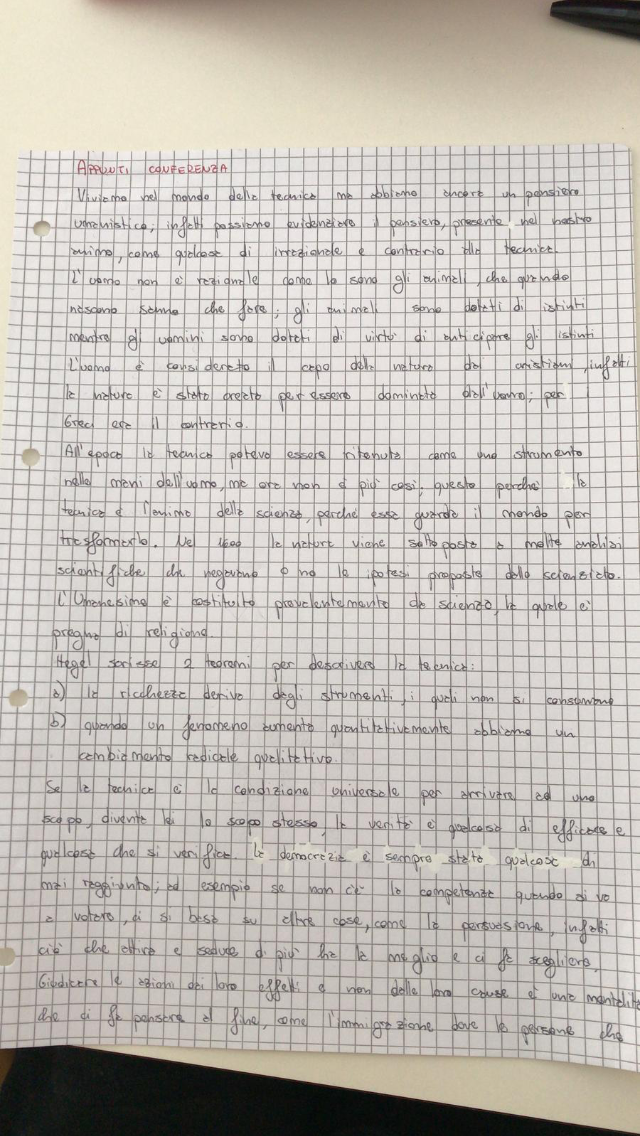 APPUNTI CONFERENZA
Viviamo nel mondo della tecnica ma abbiamo ancora un pensiero
umanistico; infatti possiamo evidenziare il pensiero, presente nel nostro
animo, come qualcosa di irrazionale e contrario alla tecnica.
L'uomo non è razionale come lo sono gli animali, che quando
nascono sanno che fare; gli animali sono dotati di istinti
mentre gli uomini sono dotati di virtù di anticipare gli istinti
L'uomo è considerato il capo della natura dai cristiani, infatti
la natura è stata creata per essere dominata dall'uomo; per
Greci era il contrario.
All'epoca la tecnica poteva essere ritenuta come uno strumento
nelle mani dell'uomo, ma ora non è più così, questo perché la
tecnica è l'animo della scienza, perché essa guarda il mondo per
trasformarlo. Nel 1600 la natura viene sottoposta a molte analisi
scientifiche che negavano o no le ipotesi proposte dallo scienziato.
L'Umanesimo è costituito prevalentemente da scienza, la quale è
pregna di religione.
Hegel scrisse 2 teoremi per descrivere la tecnica:
a) la ricchezza deriva degli strumenti, i quali non si consumano
b) quando un fenomeno aumenta quantitativamente abbiamo un
cambiamento radicale qualitativo.
Se la tecnica è la condizione universale per arrivare ad uno
scopo, diventa lei lo scopo stesso, la verità è qualcosa di efficace e
qualcosa che si verifica. La democrazia è sempre stata qualcosa di
mai raggiunto; ad esempio se non c'è la competenza quando si va
a votare, ci si basa su altre cose, come la persuasione, infatti
ciò che attira e seduce di più ha la meglio e ci fa scegliere.
Giudicare le azioni dai loro effetti e non dalle loro cause è una mentalità
che ci fa pensare al fine, come l'immigrazione dove le persone che